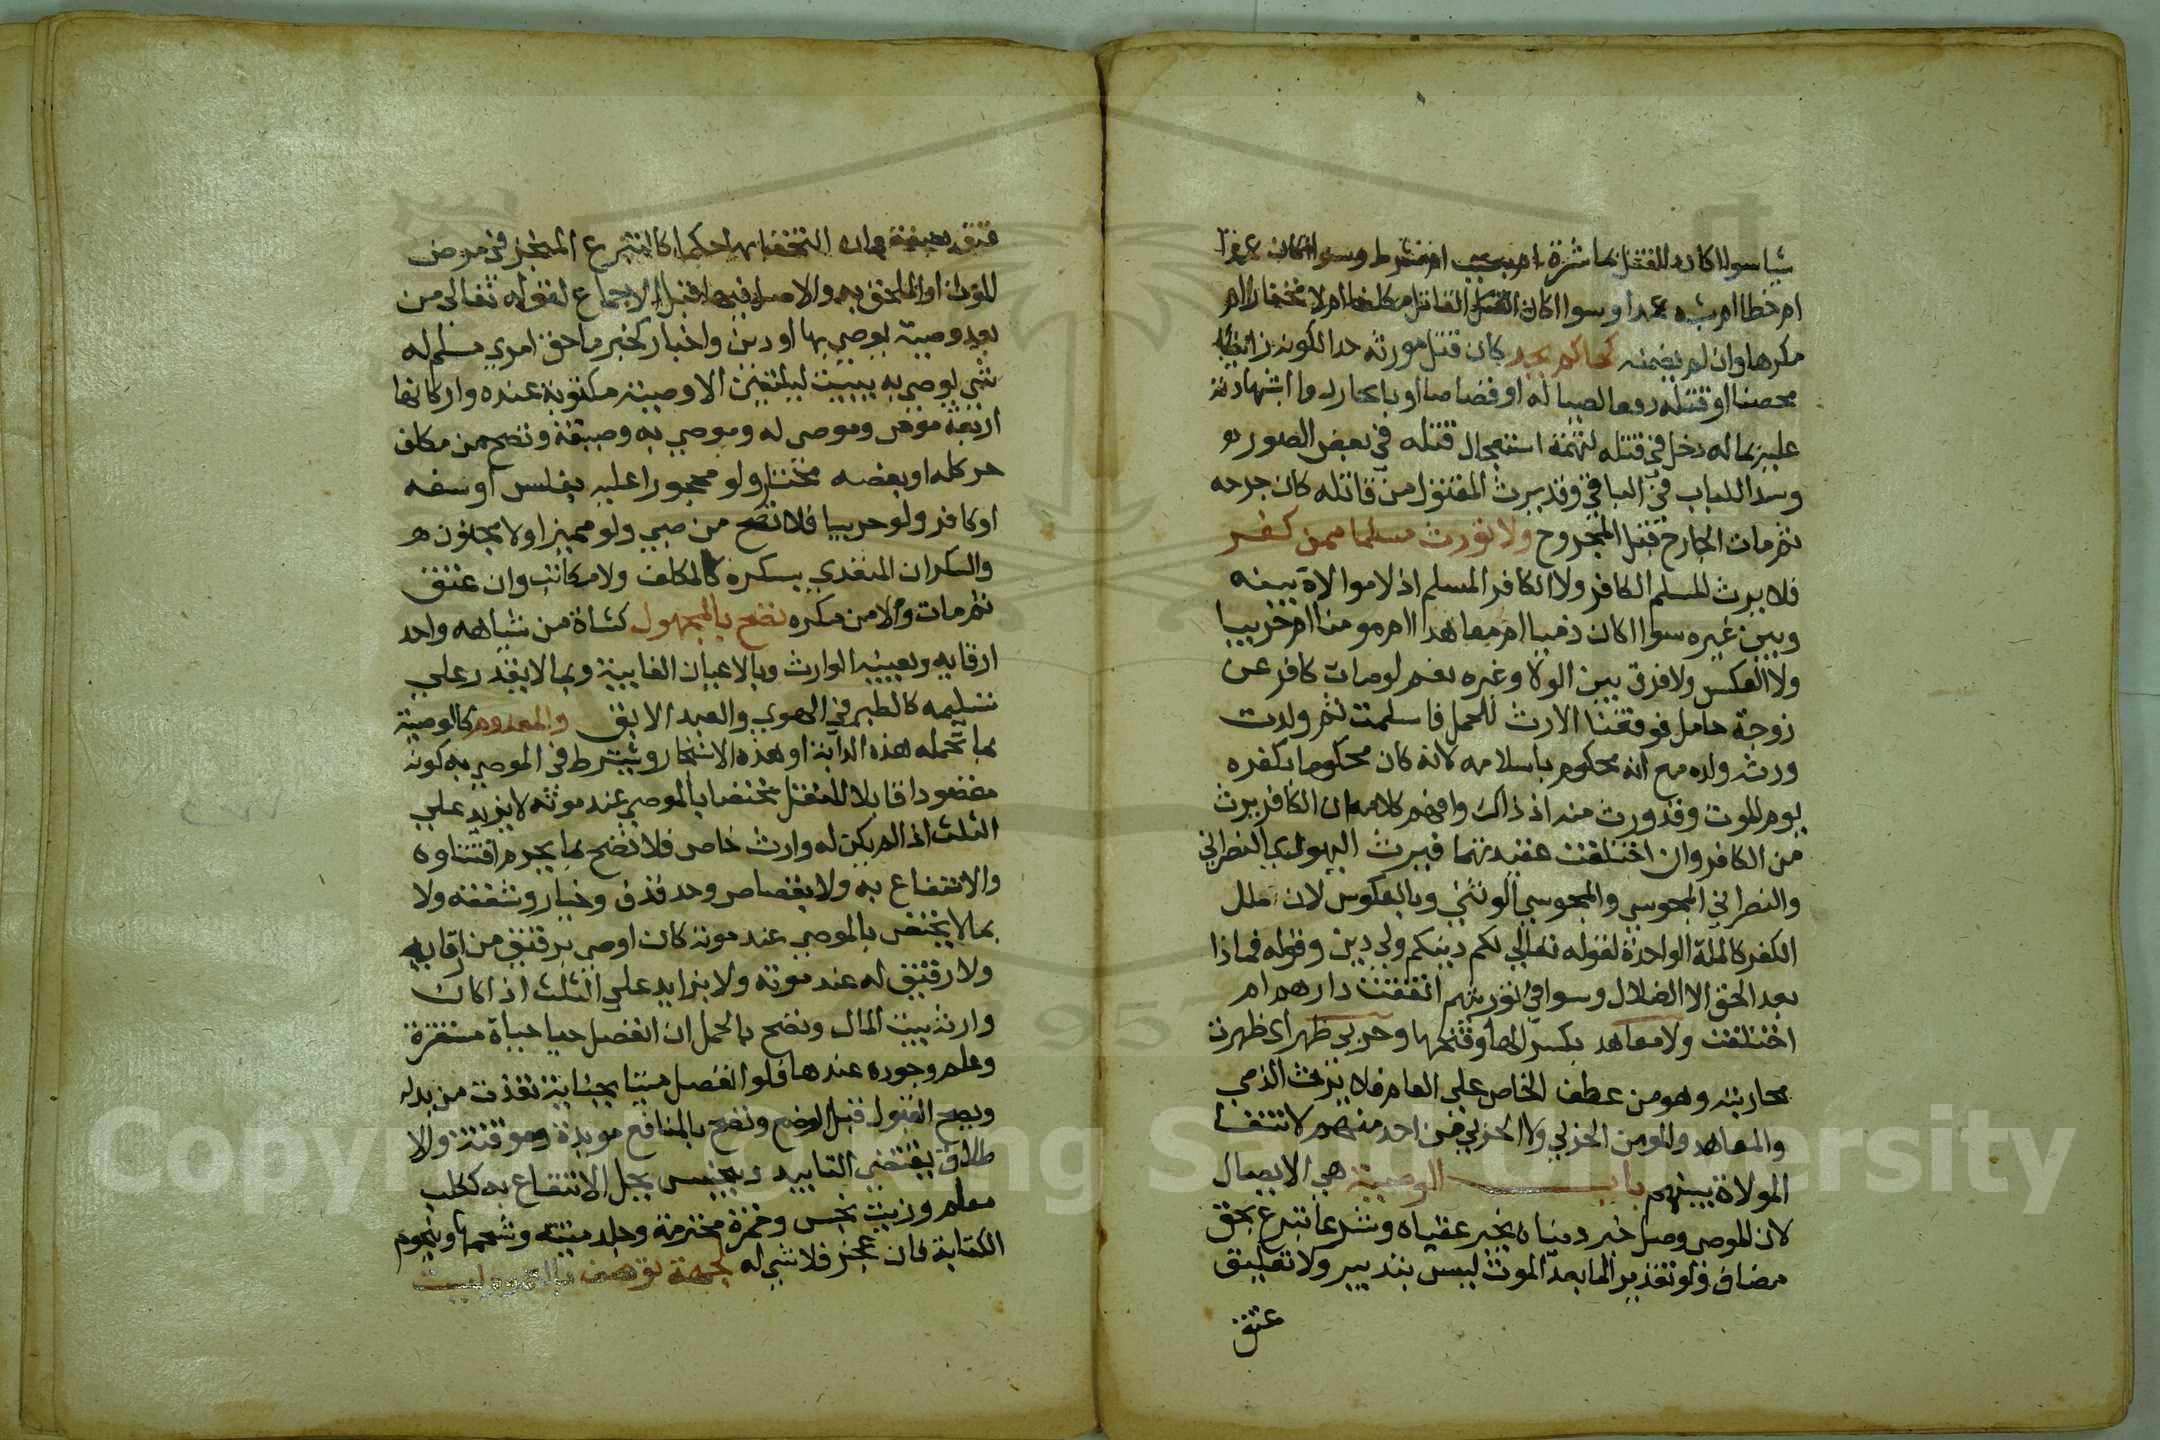 شيا سوا اكان القتل مباشرة ام بسبب ام بشرط وسوا اكان عمدا
ام خطا ام شبه عمد او سوا اكان القاتل مكلفا ام لا مختارا ام
مكرها وان لم يضمنه كحاكم بحد كان قتل مورثه حدا لكونه زانيا
محصنا او قتله دفعا لصياله او قصاصا او باعتاره وا شهادته
عليه بماله دخل في قتله لتهمة استعجال قتله في بعض الصور و
وسد اللباب في الباقي وقد يرث المقتول من قاتله كان جرحه
ثم مات الجارح قبل المجروح ولا تورث مسلما ممن كفر
فلا يرث المسلم الكافر ولا الكافر المسلم اذ لا موالاة بينه
وبين غيره سوا اكان ذميا ام معاهدا ام مومنا ام حربيا
ولا العكس ولا فرق بين الولا وغيره نعم لو مات كافر عن
زوجة حامل فوقفنا الارث للحمل فاسلمت ثم ولدت
ورثه ولده مع انه محكوم باسلامه لانه كان محكوما بكفره
يوم الموت وقد ورث منه اذ ذاك وافهم كلامه ان الكافر يرث
من الكافر وان اختلفت عقيدتهما فيرث اليهودي النصراني
والنصراني المجوسي والمجوسي الوثني وبالعكوس لان ملل
الكفر كالملة الواحدة لقوله تعالي لكم دينكم ولي دين وقوله فماذا
بعد الحق الا الضلال وسوا في توريثهم اتفقت دارهم ام
اختلفت ولا معاهد بكسر الها وفتحها وحربي ظهرا اي ظهرت
محاربته وهو من عطف الخاص علي العام فلا يرث الذمي
والمعاهد والمومن الحربي ولا الحربي من احد منهم لانتفا
الموالاة بينهم باب الوصية هي الايصال
لان الموصي وصل خير دنياه بخير عقباه وشرعا تبرع بحق
مضاف ولو تقديرا لما بعد الموت ليس بتدبير ولا تعليق
عتق
عتق بصفة وان التحقا بها حكما كالتبرع المنجز في مرض
الموت او الملحق به والاصل فيها قبل الاجماع لقوله تعالى من
بعد وصية يوصي بها او دين واخبار كخبر ما حق امري مسلم له
شي يوصي به يبيت ليلتين الا وصيته مكتوبة عنده واركانها
اربعة موص وموصى له وموصي به وصيغة وتصح من مكلف
حر كله او بعضه مختار ولو محجورا عليه بفلس او سفه
او كافر ولو حربيا فلا تصح من صبي ولو مميزا ولا مجنون
والسكران المتعدي بسكره كالمكلف ولا مكاتب وان عتق
ثم مات ولا من مكره تصح بالمجهول كشاة من شياهه واحد
ارقايه ويعينه الوارث وبالاعيان الغايبة وبما لا يقدر علي
تسليمه كالطير في الهوي والعبد الابق والمعدوم كالوصية
بما تحمله هذه الدابة او هذه الاشجار ويشترط في الموصي به كونه
مقصودا قابلا للنقل مختصا بالموصي عند موته لا يزيد علي
الثلث اذا لم يكن له وارث خاص فلا تصح بما يحرم اقتناوه
والانتفاع به ولا بقصاص وحد قذف وخيار وشفعة ولا
بما لا يختص بالموصي عند موته كان اوصي برقيق من ارقايه
ولا رقيق له عند موته ولا بزايد علي الثلث اذا كان
وارثه بيت المال وتصح بالحمل ان انفصل حيا حياة مستقرة
وعلم وجوده عندها فلو انفصل ميتا بجناية نفذت من بدله
ويصح القبول قبل الوضع وتصح بالمنافع موبدة وموقتة والا
طلاق يقتضي التابيد وبنجس يحل الانتفاع به ككلب
معلم وزيت نجس وخمرة محترمة وجلد ميتة وشحمها وبنجوم
الكتابة فان عجز فلا شي له لجهة توصف بالعموم ليست
Copyright © King Saud University
1957